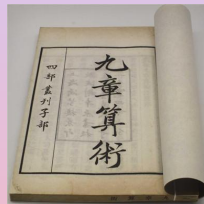 九章算術
四部叢刊子部